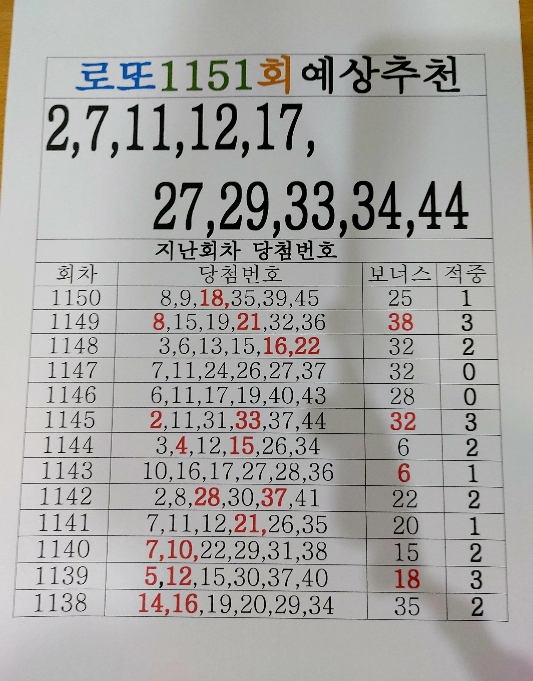 로또1151회예상추천
2,7,11,12,17,
27,29,33,34,44
지난회차 당첨번호
회차 당첨번호 보너스 적중
1150 8,9,18,35,39,45 25 1
1149 8,15,19,21,32,36 38 3
1148 3,6,13,15,16,22 32 2
1147 7,11,24,26,27,37 32 0
1146 6,11,17,19,40,43 28 0
1145 2,11,31,33,37,44 32 3
1144 3,4,12,15,26,34 6 2
1143 10,16,17,27,28,36 6 1
1142 2,8,28,30,37,41 22 2
1141 7,11,12,21,26,35 20 1
1140 7,10,22,29,31,38 15 2
1139 5,12,15,30,37,40 18 3
1138 14,16,19,20,29,34 35 2